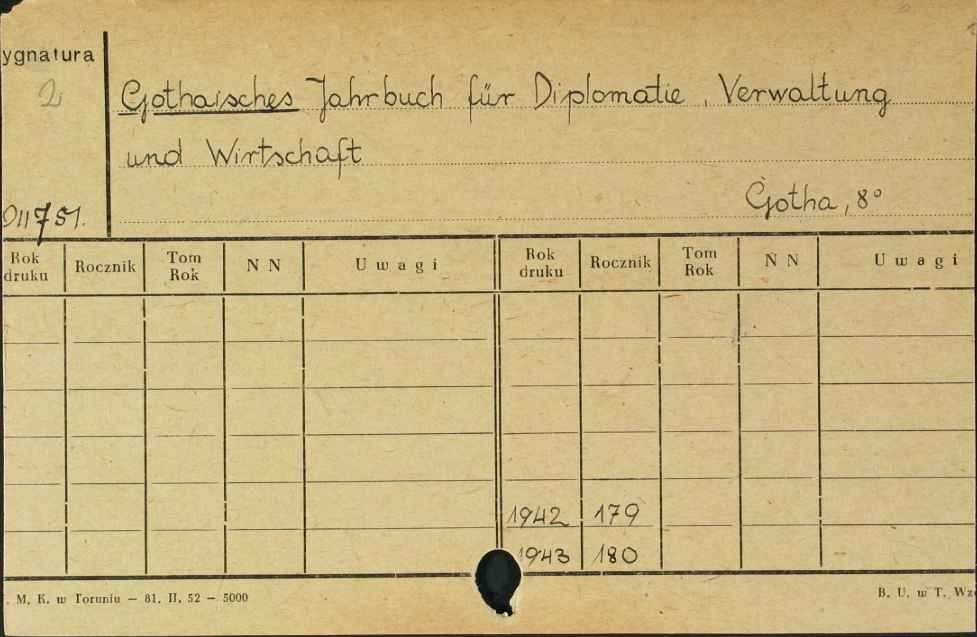 ygnatura
2
Gothaisches Jahrbuch für Diplomatie, Verwaltung
und Wirtschaft
Gotha, 8°
011751.
Rok druku Rocznik Tom Rok N N Uwagi Rok druku Rocznik Tom Rok N N Uwagi
1942 179
1943 180
. M. K. w Toruniu — 81. II. 52 — 5000
B. U. w T. Wz